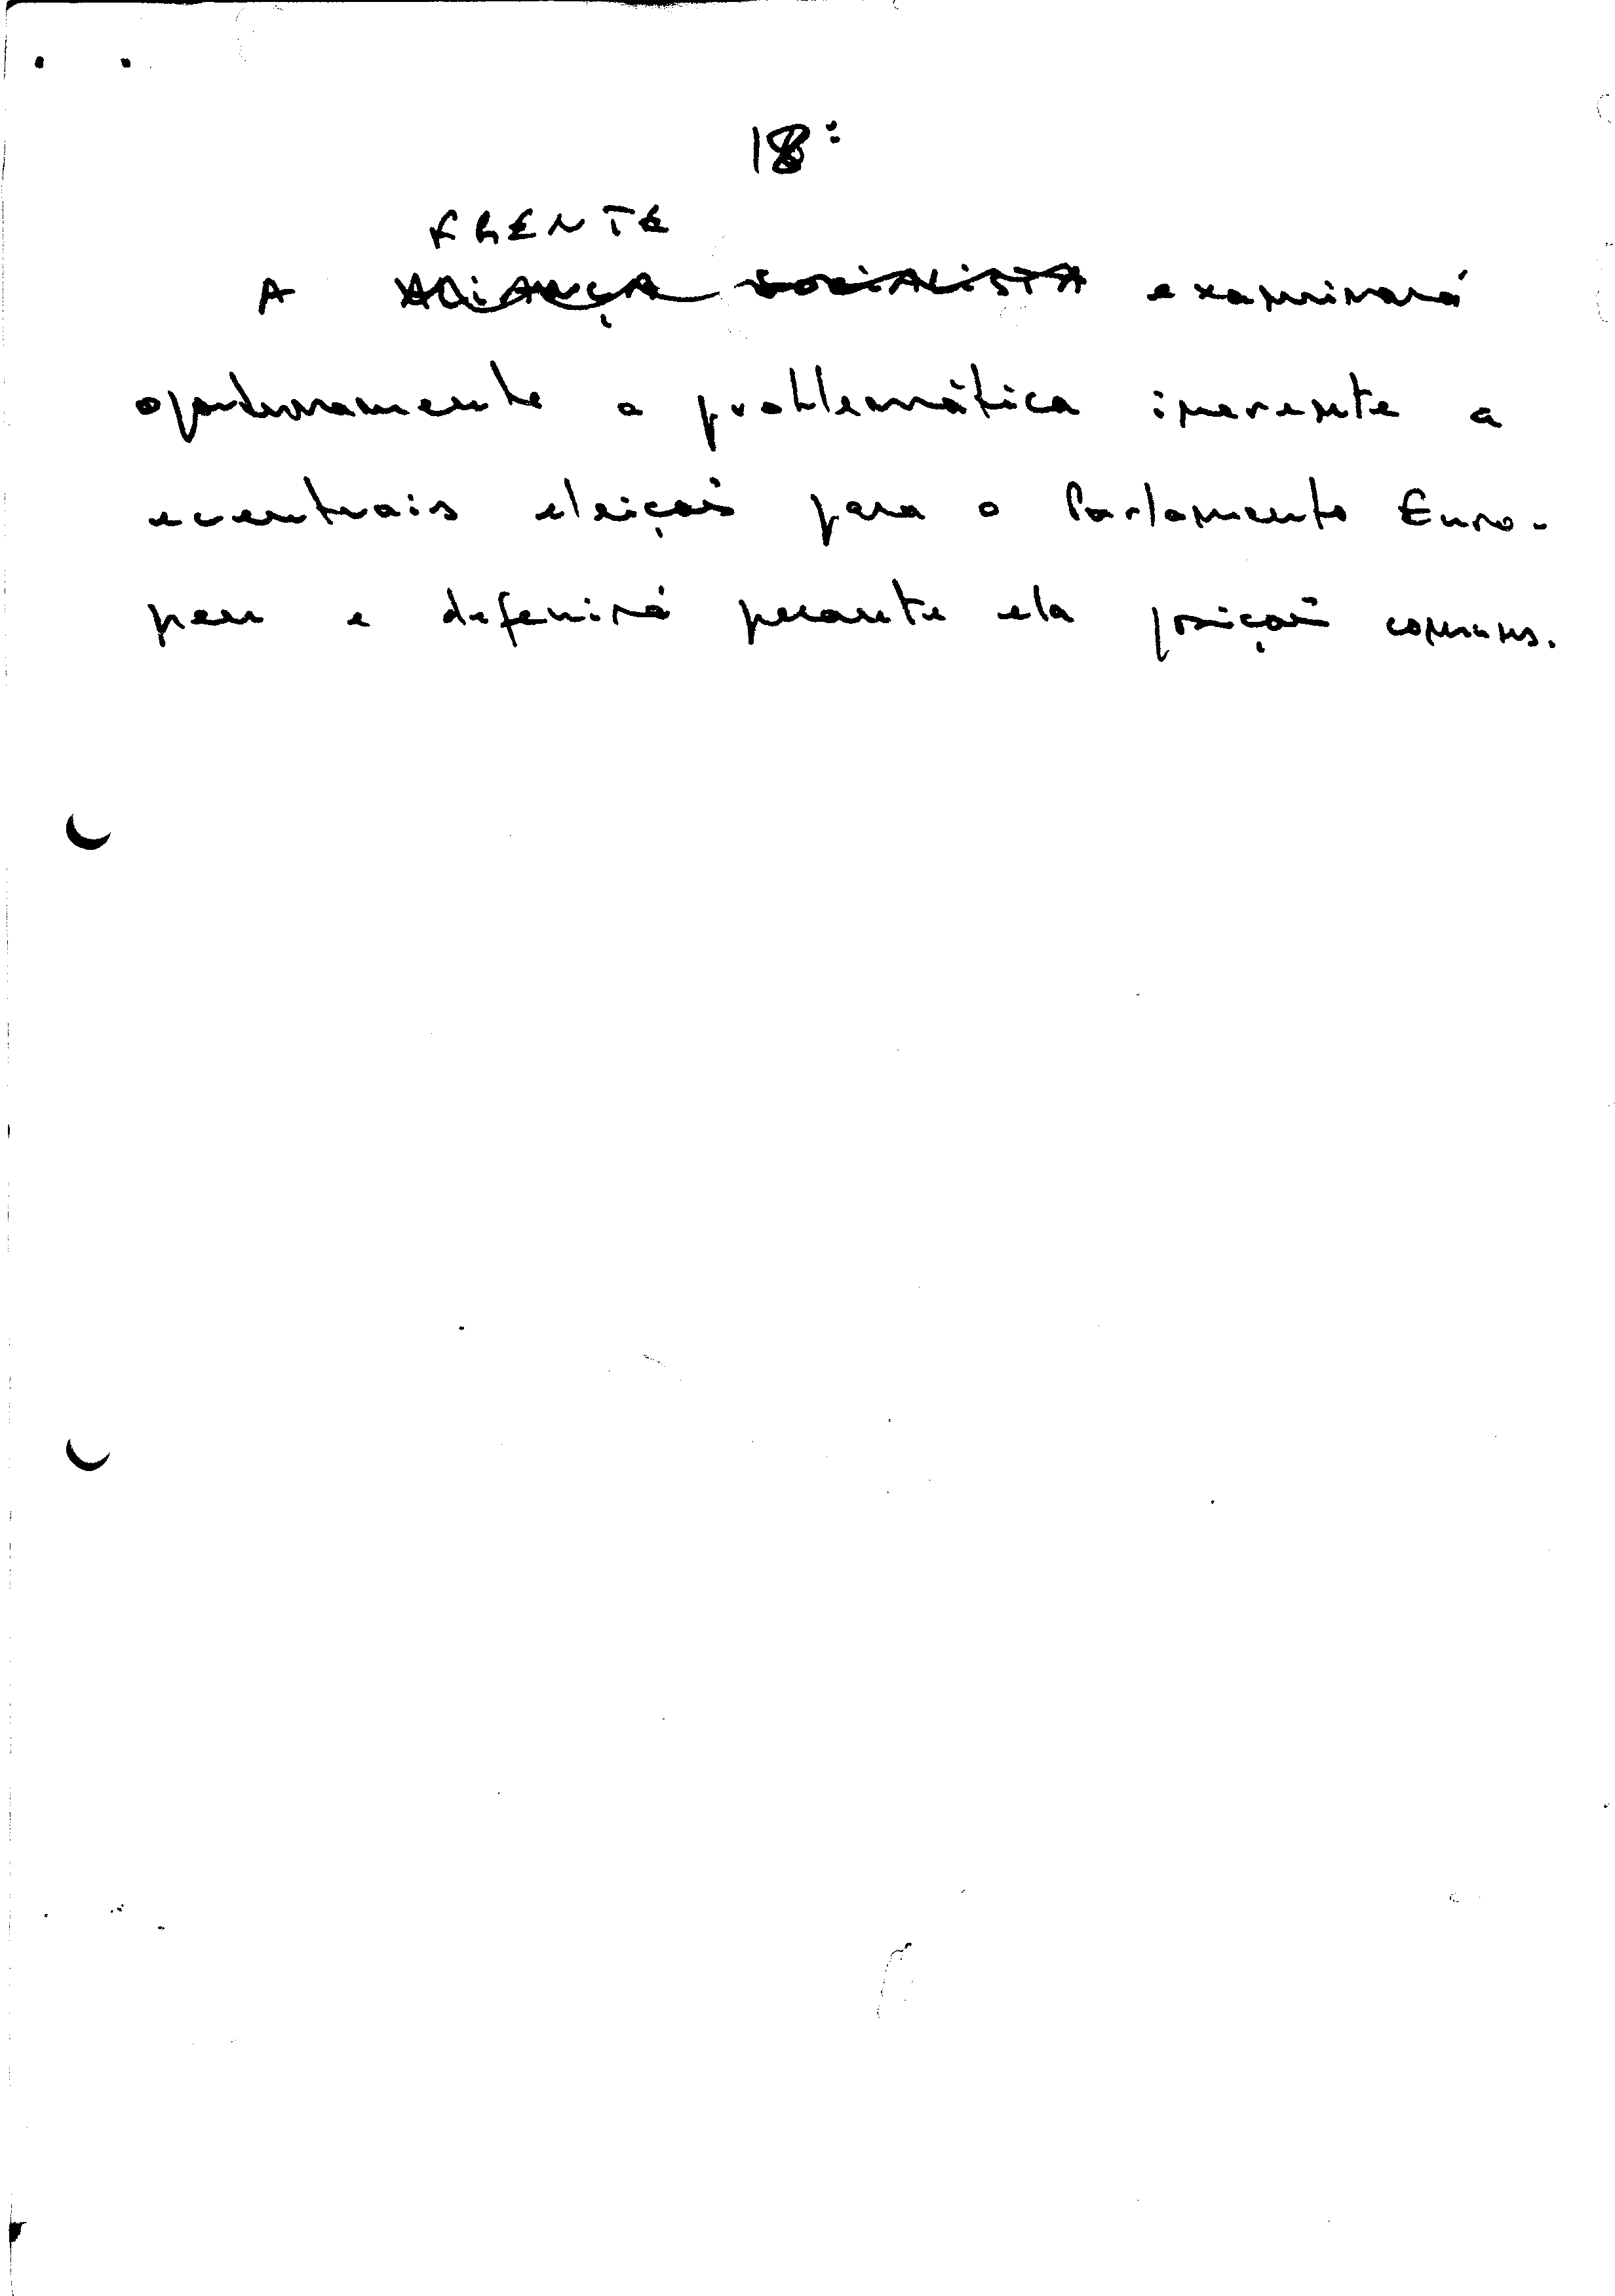 18º
FRENTE
A ALIANÇA SOCIALISTA examinará
oportunamente a problemática inerente a
eventuais eleições para o Parlamento Euro-
peu e defenirá perante ela posições comuns.